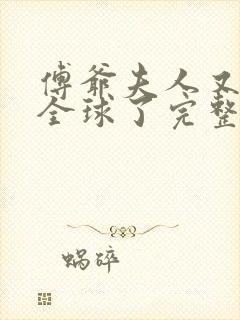 傅爷夫人又
全球了完整
蜗碎